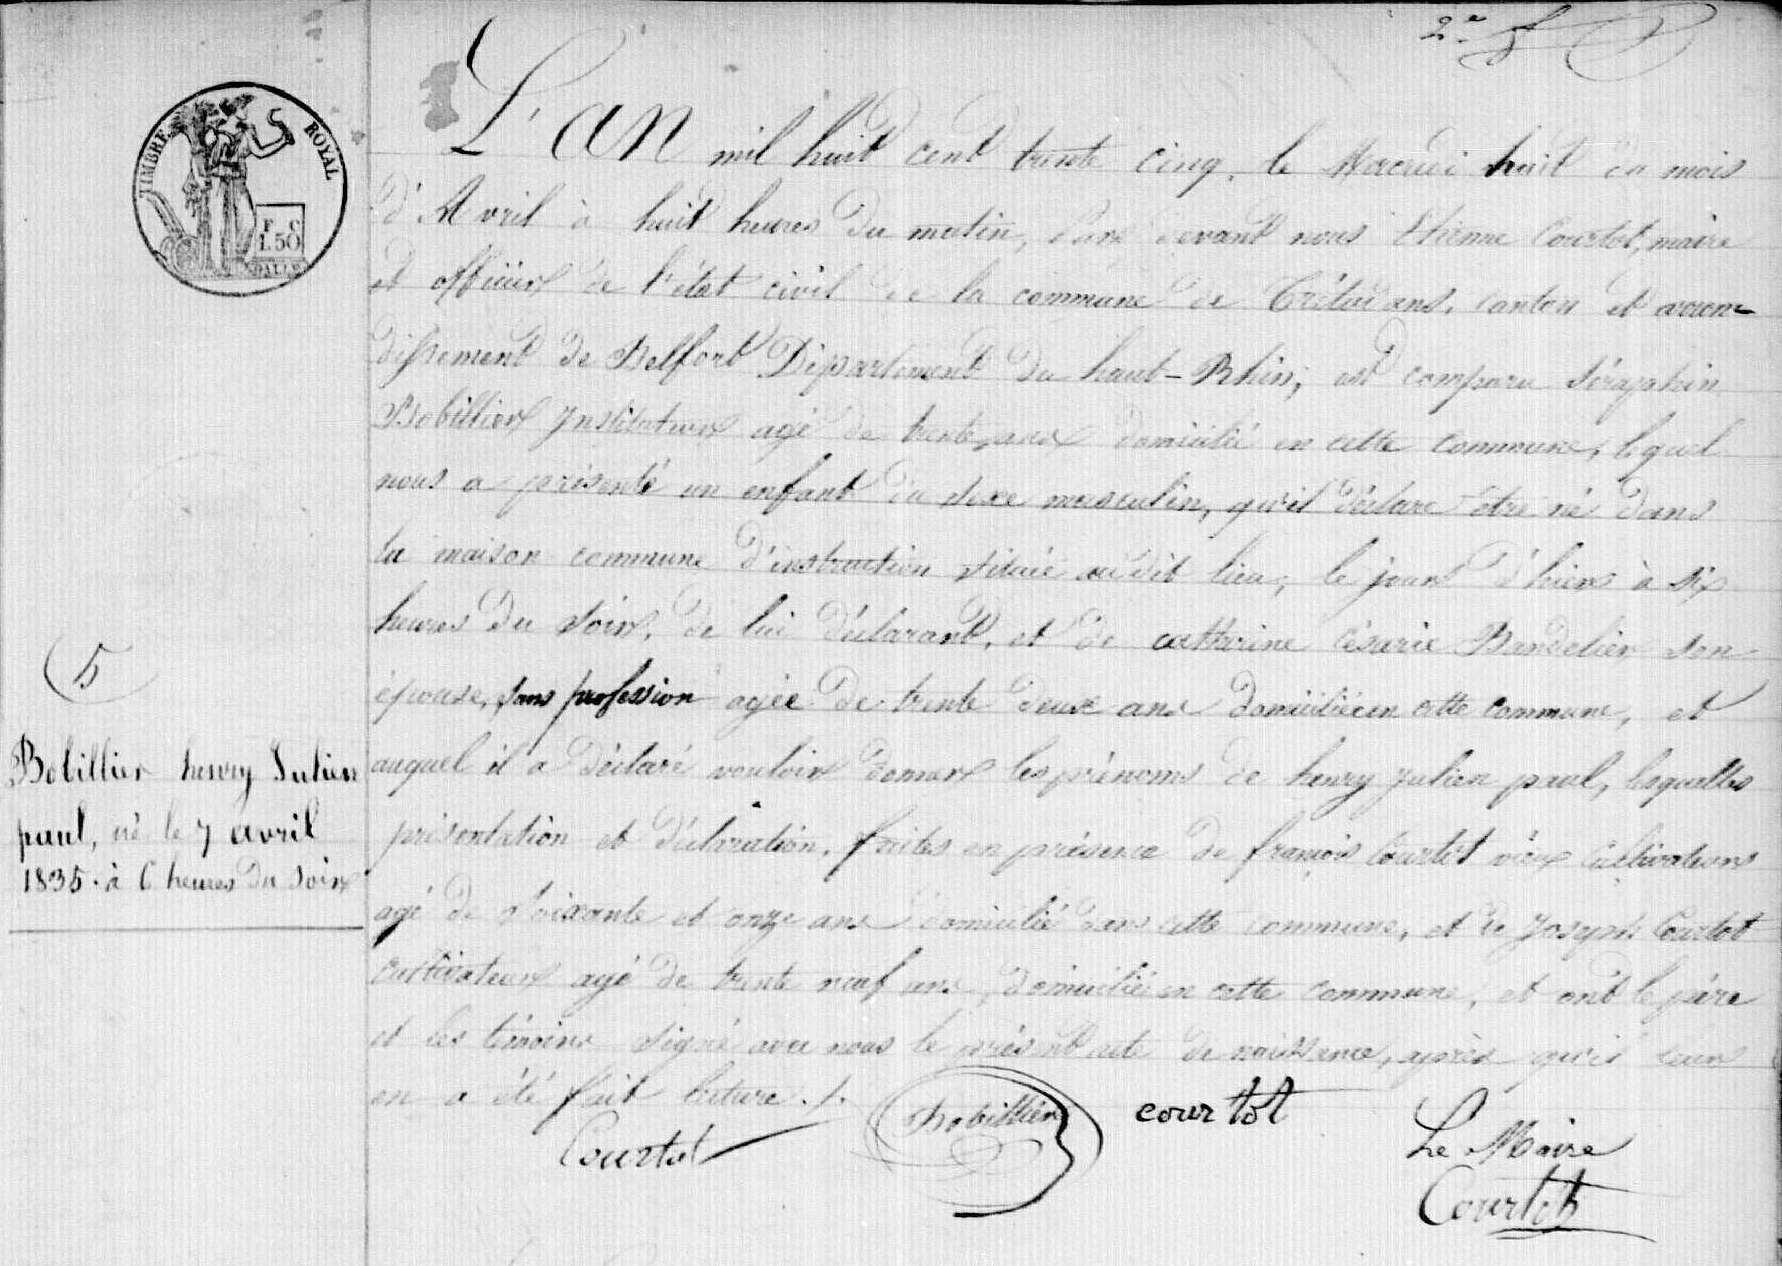 2e f
TIMBRE ROYAL
F C
1.50
L'an mil huit cent trente cinq, le Mercredi huit du mois
d'Avril à huit heures du matin, Par devant nous Etienne Courtot, maire
et officier de l'état civil de la commune de Trétudans, canton et arron-
dissement de Belfort Département du haut-Rhin, est comparu Séraphin
Bobillier Instituteur agé de trente ans domicilié en cette commune, lequel
nous a présenté un enfant du sexe masculin, qu'il déclare être né dans
la maison commune d'instruction située audit lieu, le jour d'hier à six
heures du soir, de lui déclarant, et de catherine Césarie Bandelier son
épouse, sans profession agée de trente deux ans domiciliée en cette commune, et
auquel il a déclaré vouloir donner les prénoms de henry julien paul, lesquelles
présentation et déclaration, faites en présence de françois Courtot vieux Cultivateur
agé de soixante et onze ans domicilié dans cette commune, et de Joseph Courtot
cultivateur agé de trente neuf ans, domicilié en cette commune, et ont le père
et les témoins signé avec nous le présent acte de naissance, après qu'il leur
en a été fait lecture ./.
Courtot Bobillier courtot Le Maire
Courtot
5
Bobillier henry Julien
paul, né le 7 avril
1835. à 6 heures du soir